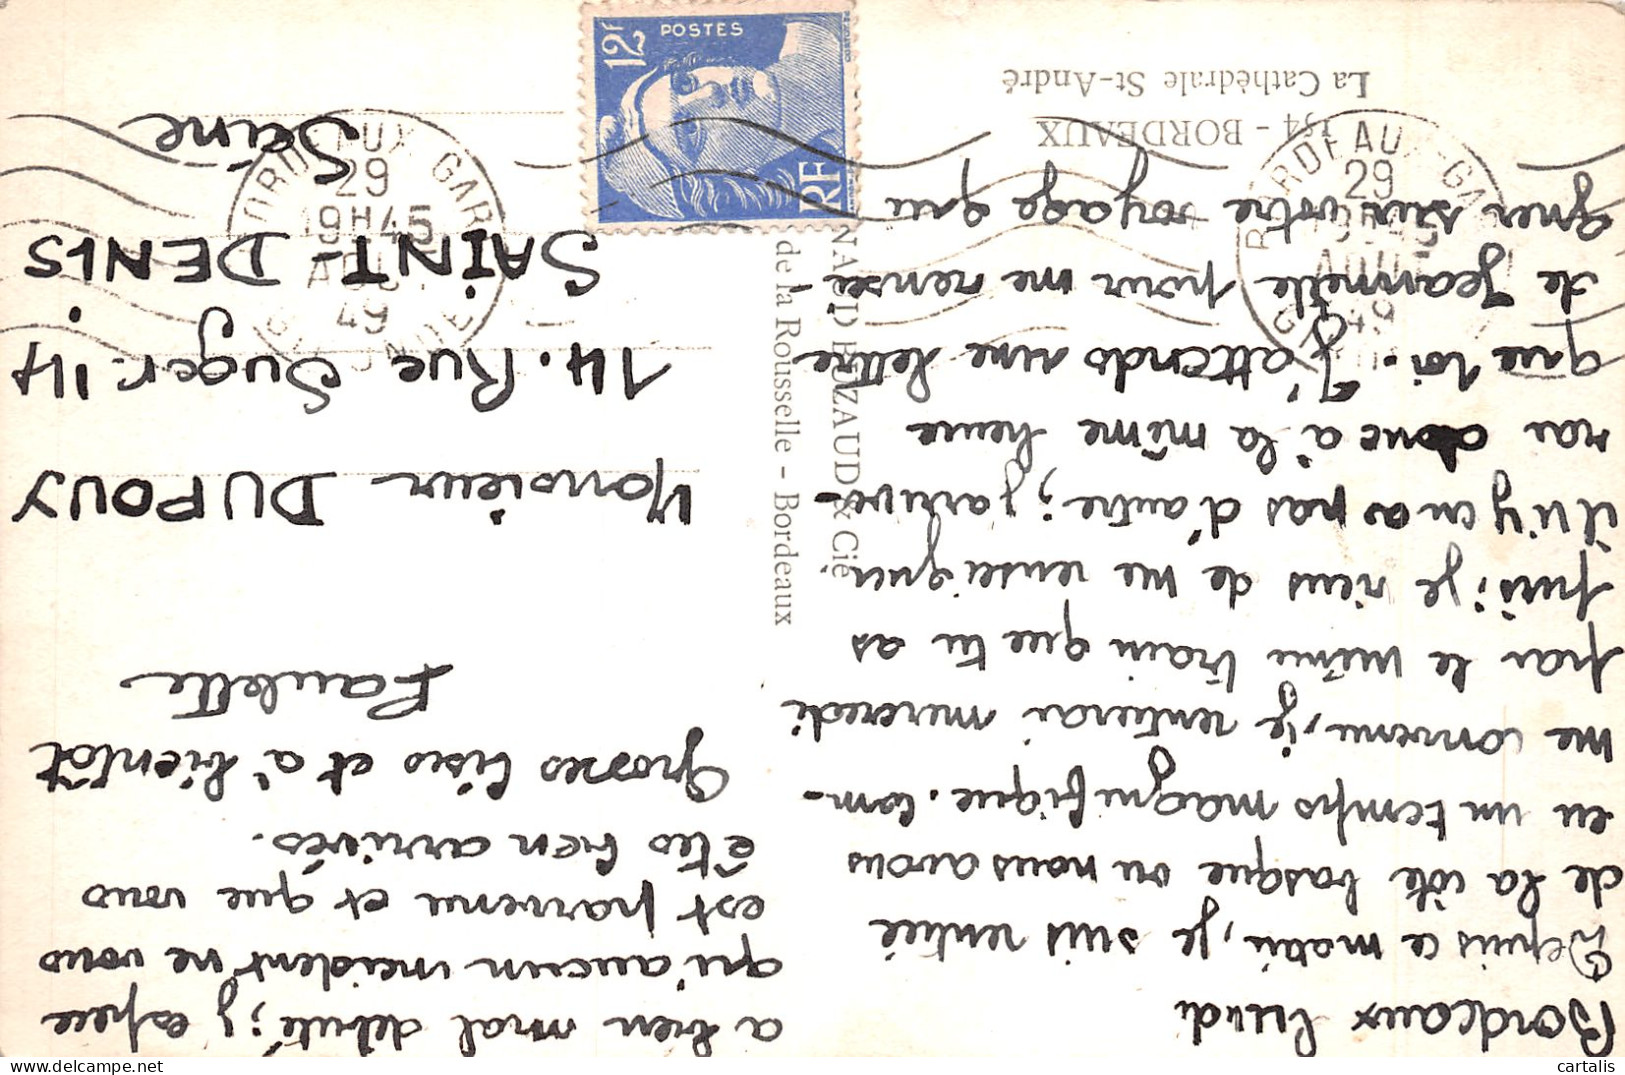 Bordeaux lundi
Depuis ce matin, je suis rentrée
de la côte basque ou nous avons
eu un temps magnifique. Com-
me convenu, je rentrerai mercredi
par le même train que tu as
pris; je viens de me renseigner
il n'y en a pas d'autre; j'arrive-
rai donc à la même heure
que toi. J'attends une lettre
de Jeannette pour me rensei
gner sur votre voyage qui
a bien mal débuté; j'y espère
qu'aucun incident ne vous
est parvenu et que vous
êtes bien arrivés.
Grosses bises et à bientôt
Paulette
Monsieur DUPOUY
14. Rue Suger. 14
SAINT-DENIS
Seine
134 - BORDEAUX
La Cathédrale St-André
& Cie
de la Rousselle - Bordeaux
POSTES
12F
RF
BORDEAUX GARE
29
19H45
AOUT
49
GIRONDE
BORDEAUX-GARE
29
19H45
AOUT
49
GIRONDE
cartalis